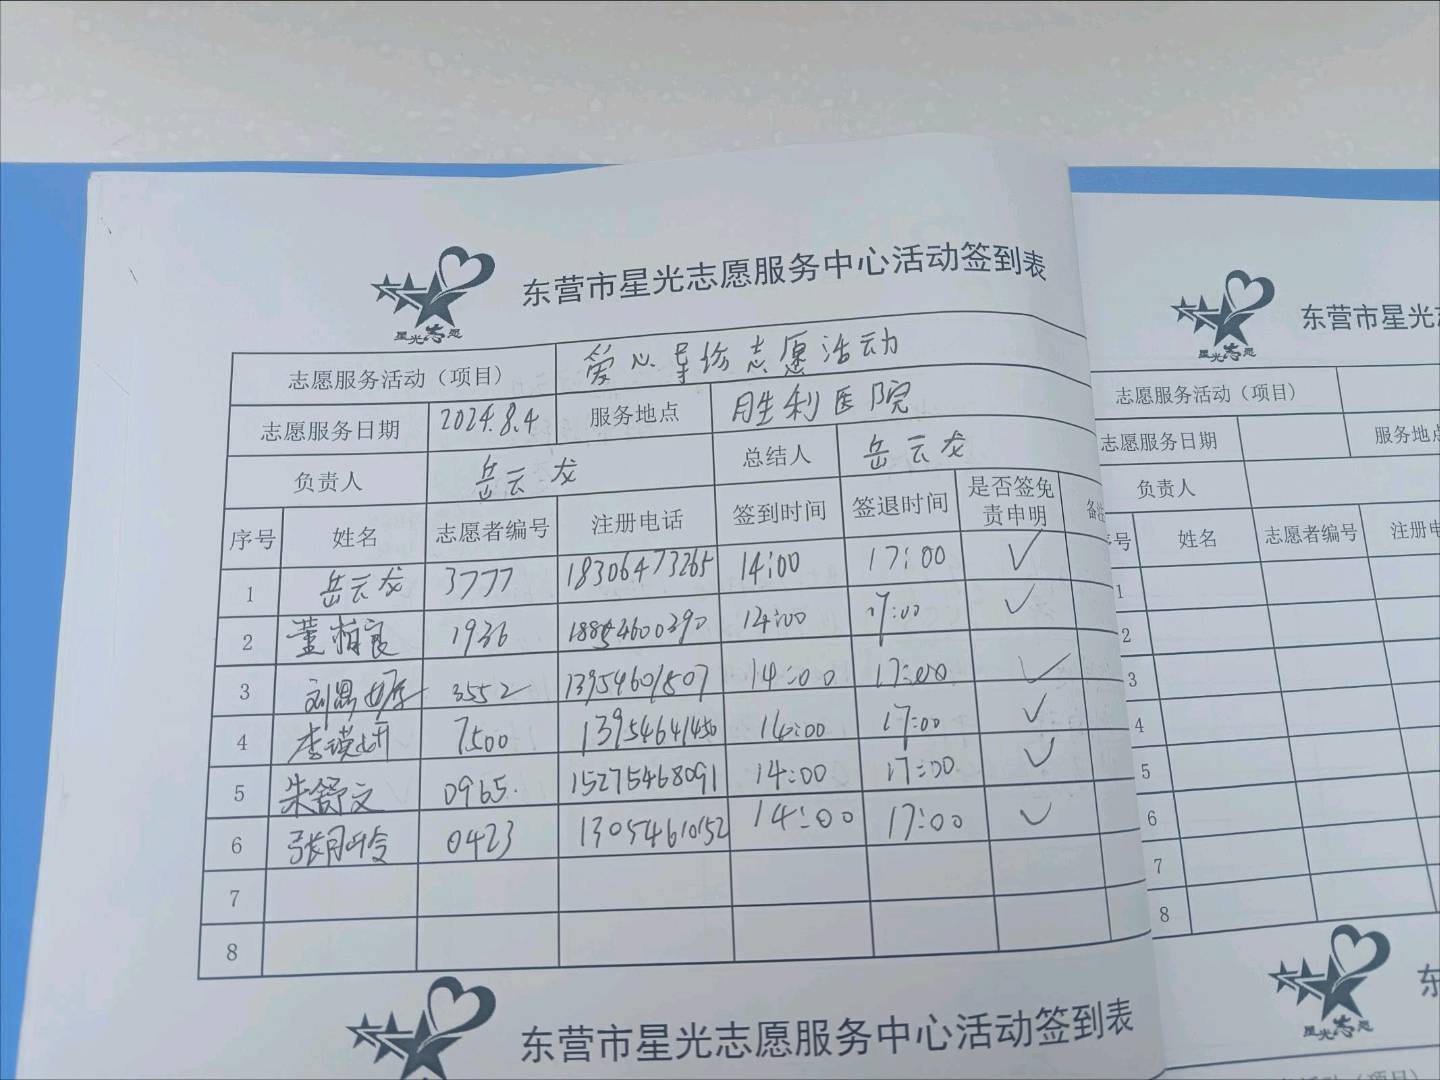 星光志愿
东营市星光志愿服务中心活动签到表
志愿服务活动（项目） 爱心导诊志愿活动
志愿服务日期 2024.8.4 服务地点 胜利医院
负责人 岳云龙 总结人 岳云龙
序号 姓名 志愿者编号 注册电话 签到时间 签退时间 是否签免责申明 备注
1 岳云龙 3777 18306473265 14:00 17:00 ✓
2 董楠良 1936 18854600390 14:00 17:00 ✓
3 刘思 3552 13954601507 14:00 17:00 ✓
4 李瑛妍 7500 13954641450 14:00 17:00 ✓
5 朱舒文 0965. 15275468091 14:00 17:00 ✓
6 张 0423 13054610152 14:00 17:00 ✓
7
8
东营市星光志愿服务中心活动签到表
星光志愿
东营市星光志
志愿服务活动（项目）
志愿服务日期 服务地点
负责人
序号 姓名 志愿者编号 注册电
1
2
3
4
5
6
7
8
星光志愿
东